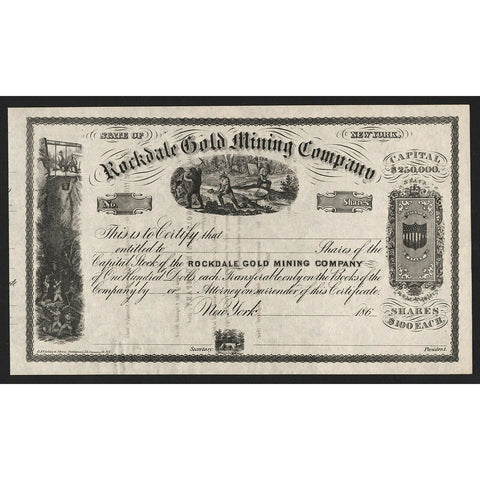 STATE OF NEW YORK.
Rockdale Gold Mining Company
CAPITAL
$250,000.
No. Shares
This is to Certify that
entitled to Shares of the
Capital Stock of the ROCKDALE GOLD MINING COMPANY
of One Hundred Dolls each Transferable only on the Books of the
Company by or Attorney on surrender of this Certificate.
New York 186
SHARES
$100 EACH.
Secretary. President.